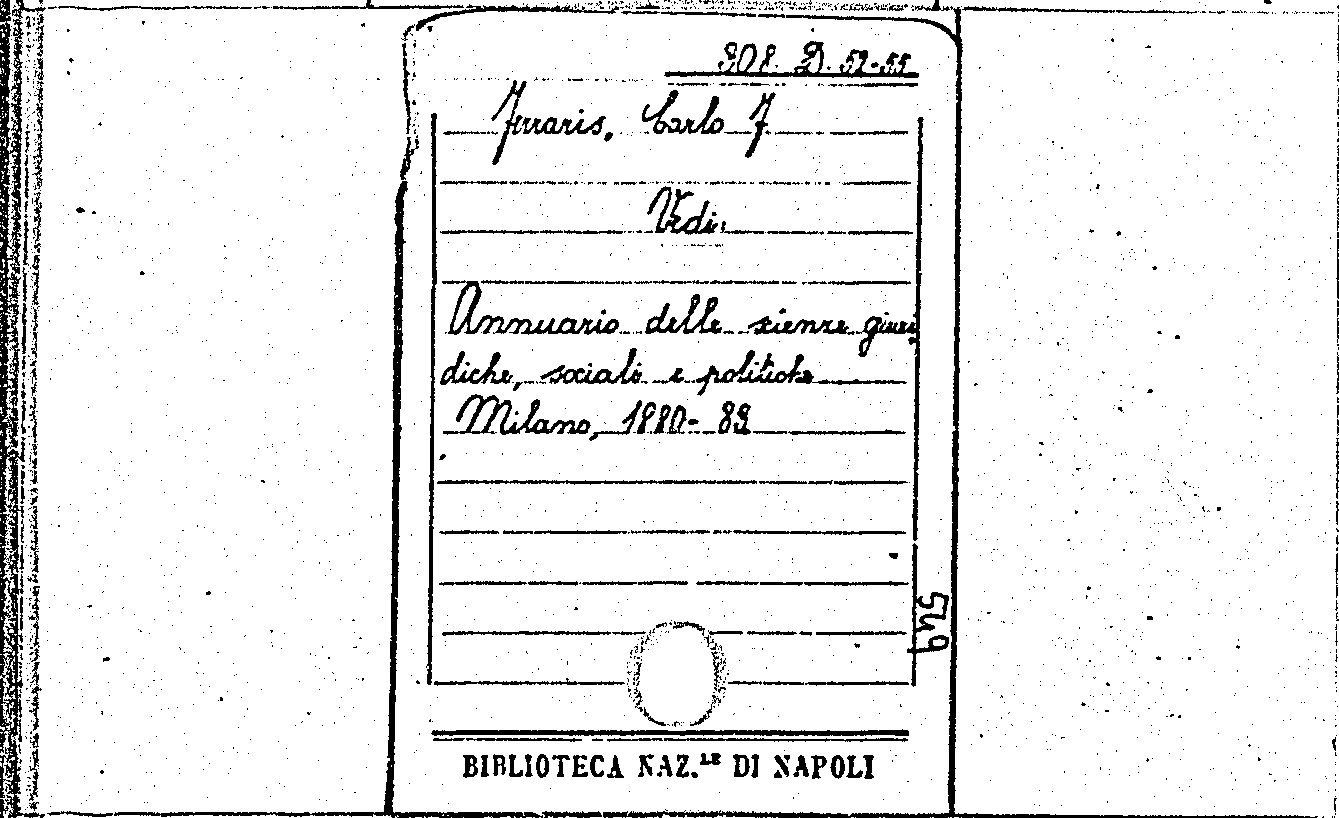 308. D. 52-55
Ferraris, Carlo F
Vedi:
Annuario delle scienze giuri
diche, sociali e politiche
Milano, 1880-83
549
BIBLIOTECA NAZ.LE DI NAPOLI